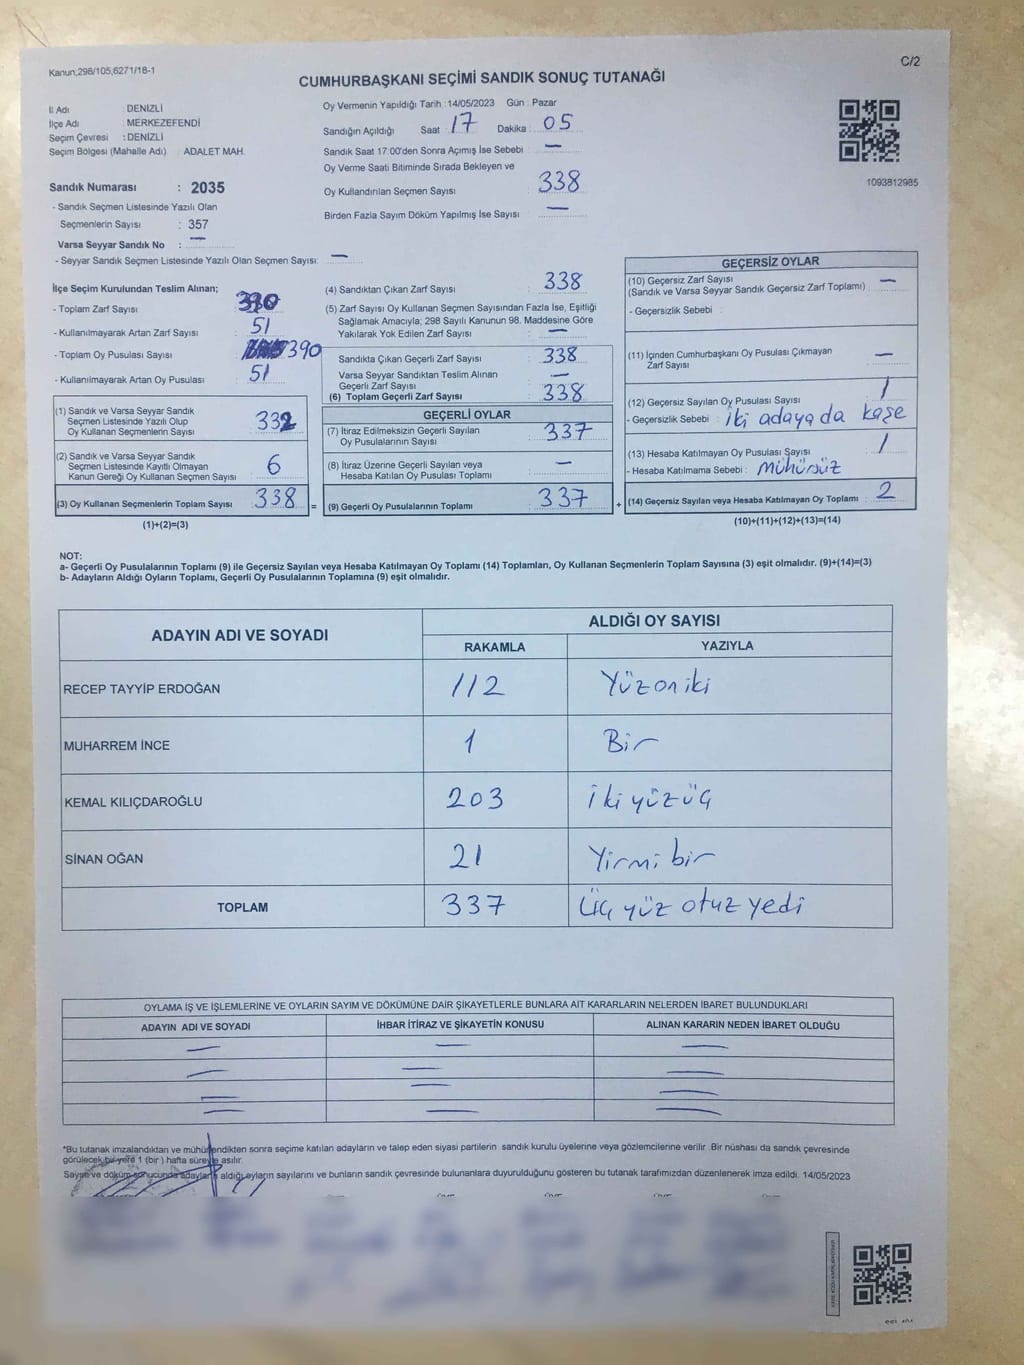 Kanun;298/105,6271/18-1
C/2
CUMHURBAŞKANI SEÇİMİ SANDIK SONUÇ TUTANAĞI
İl Adı : DENİZLİ
İlçe Adı : MERKEZEFENDİ
Seçim Çevresi : DENİZLİ
Seçim Bölgesi (Mahalle Adı) : ADALET MAH.
Sandık Numarası : 2035
- Sandık Seçmen Listesinde Yazılı Olan
Seçmenlerin Sayısı : 357
Varsa Seyyar Sandık No : —
- Seyyar Sandık Seçmen Listesinde Yazılı Olan Seçmen Sayısı: —
Oy Vermenin Yapıldığı Tarih : 14/05/2023 Gün : Pazar
Sandığın Açıldığı Saat : 17 Dakika : 05
Sandık Saat 17:00'den Sonra Açımış İse Sebebi : —
Oy Verme Saati Bitiminde Sırada Bekleyen ve
Oy Kullandırılan Seçmen Sayısı : 338
Birden Fazla Sayım Döküm Yapılmış İse Sayısı : —
1093812985
İlçe Seçim Kurulundan Teslim Alınan;
- Toplam Zarf Sayısı : 390
- Kullanılmayarak Artan Zarf Sayısı : 51
- Toplam Oy Pusulası Sayısı : 390
- Kullanılmayarak Artan Oy Pusulası : 51
(1) Sandık ve Varsa Seyyar Sandık
Seçmen Listesinde Yazılı Olup
Oy Kullanan Seçmenlerin Sayısı 332
(2) Sandık ve Varsa Seyyar Sandık
Seçmen Listesinde Kayıtlı Olmayan
Kanun Gereği Oy Kullanan Seçmen Sayısı 6
(3) Oy Kullanan Seçmenlerin Toplam Sayısı 338 =
(1)+(2)=(3)
(4) Sandıktan Çıkan Zarf Sayısı : 338
(5) Zarf Sayısı Oy Kullanan Seçmen Sayısından Fazla İse, Eşitliği
Sağlamak Amacıyla; 298 Sayılı Kanunun 98. Maddesine Göre
Yakılarak Yok Edilen Zarf Sayısı : —
Sandıkta Çıkan Geçerli Zarf Sayısı : 338
Varsa Seyyar Sandıktan Teslim Alınan
Geçerli Zarf Sayısı : —
(6) Toplam Geçerli Zarf Sayısı : 338
GEÇERLİ OYLAR
(7) İtiraz Edilmeksizin Geçerli Sayılan
Oy Pusulalarının Sayısı : 337
(8) İtiraz Üzerine Geçerli Sayılan veya
Hesaba Katılan Oy Pusulası Toplamı : —
(9) Geçerli Oy Pusulalarının Toplamı : 337 +
GEÇERSİZ OYLAR
(10) Geçersiz Zarf Sayısı : —
(Sandık ve Varsa Seyyar Sandık Geçersiz Zarf Toplamı)
- Geçersizlik Sebebi :
(11) İçinden Cumhurbaşkanı Oy Pusulası Çıkmayan
Zarf Sayısı : —
(12) Geçersiz Sayılan Oy Pusulası Sayısı : 1
- Geçersizlik Sebebi : iki adayada kaşe
(13) Hesaba Katılmayan Oy Pusulası Sayısı : 1
- Hesaba Katılmama Sebebi : Mühürsüz
(14) Geçersiz Sayılan veya Hesaba Katılmayan Oy Toplamı : 2
(10)+(11)+(12)+(13)=(14)
NOT:
a- Geçerli Oy Pusulalarının Toplamı (9) ile Geçersiz Sayılan veya Hesaba Katılmayan Oy Toplamı (14) Toplamları, Oy Kullanan Seçmenlerin Toplam Sayısına (3) eşit olmalıdır. (9)+(14)=(3)
b- Adayların Aldığı Oyların Toplamı, Geçerli Oy Pusulalarının Toplamına (9) eşit olmalıdır.
ADAYIN ADI VE SOYADI
ALDIĞI OY SAYISI
RAKAMLA YAZIYLA
RECEP TAYYİP ERDOĞAN 112 Yüzoniki
MUHARREM İNCE 1 Bir
KEMAL KILIÇDAROĞLU 203 İkiyüzüç
SİNAN OĞAN 21 Yirmibir
TOPLAM 337 Üçyüz otuz yedi
OYLAMA İŞ VE İŞLEMLERİNE VE OYLARIN SAYIM VE DÖKÜMÜNE DAİR ŞİKAYETLERLE BUNLARA AİT KARARLARIN NELERDEN İBARET BULUNDUKLARI
ADAYIN ADI VE SOYADI İHBAR İTİRAZ VE ŞİKAYETİN KONUSU ALINAN KARARIN NEDEN İBARET OLDUĞU
— — —
— — —
— — —
— — —
*Bu tutanak imzalandıktan ve mühürlendikten sonra seçime katılan adayların ve talep eden siyasi partilerin sandık kurulu üyelerine veya gözlemcilerine verilir. Bir nüshası da sandık çevresinde
görülecek bir yere 1 (bir) hafta süreyle asılır.
Sayım ve döküm sonucunda adayların aldığı oyların sayılarını ve bunların sandık çevresinde bulunanlara duyurulduğunu gösteren bu tutanak tarafımızdan düzenlenerek imza edildi. 14/05/2023